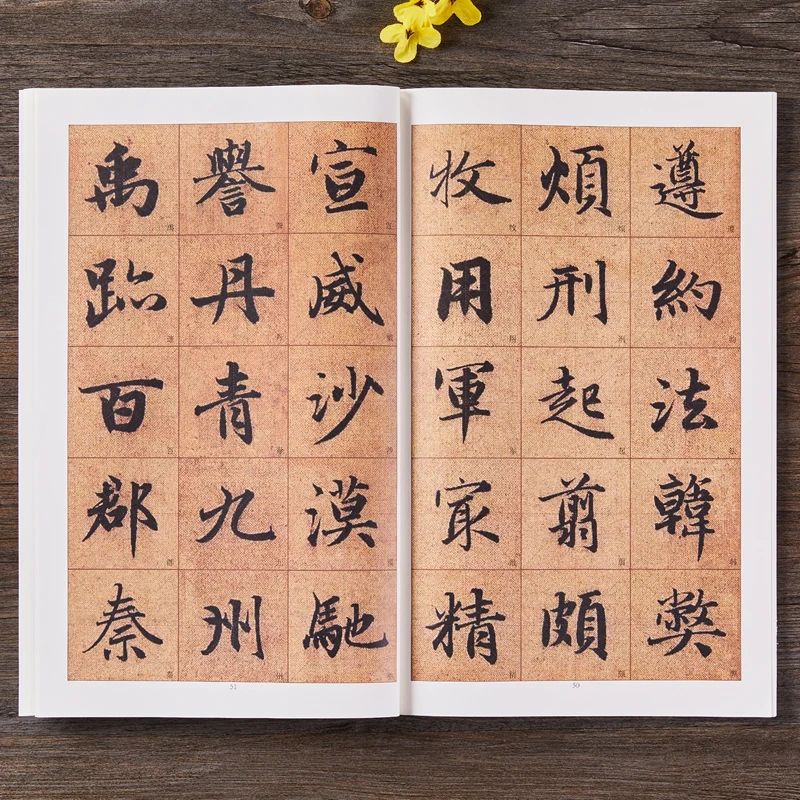 遵約法韓弊
煩刑起翦頗
牧用軍最精
50
宣威沙漠馳
譽丹青九州
禹跡百郡秦
51